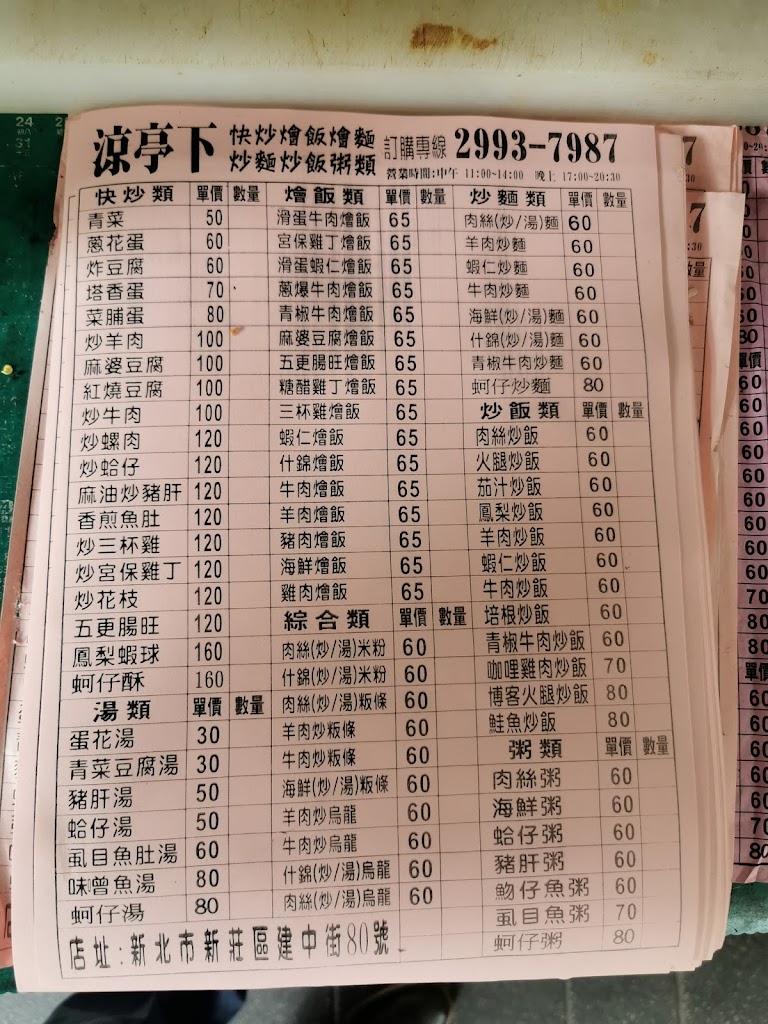 涼亭下
快炒燴飯燴麵
炒麵炒飯粥類
訂購專線 2993-7987
營業時間:中午 11:00~14:00 晚上 17:00~20:30
快炒類 單價 數量
青菜 50
蔥花蛋 60
炸豆腐 60
塔香蛋 70
菜脯蛋 80
炒羊肉 100
麻婆豆腐 100
紅燒豆腐 100
炒牛肉 100
炒螺肉 120
炒蛤仔 120
麻油炒豬肝 120
香煎魚肚 120
炒三杯雞 120
炒宮保雞丁 120
炒花枝 120
五更腸旺 120
鳳梨蝦球 160
蚵仔酥 160
湯類 單價 數量
蛋花湯 30
青菜豆腐湯 30
豬肝湯 50
蛤仔湯 50
虱目魚肚湯 60
味曾魚湯 80
蚵仔湯 80
燴飯類 單價 數量
滑蛋牛肉燴飯 65
宮保雞丁燴飯 65
滑蛋蝦仁燴飯 65
蔥爆牛肉燴飯 65
青椒牛肉燴飯 65
麻婆豆腐燴飯 65
五更腸旺燴飯 65
糖醋雞丁燴飯 65
三杯雞燴飯 65
蝦仁燴飯 65
什錦燴飯 65
牛肉燴飯 65
羊肉燴飯 65
豬肉燴飯 65
海鮮燴飯 65
雞肉燴飯 65
綜合類 單價 數量
肉絲(炒/湯)米粉 60
什錦(炒/湯)米粉 60
肉絲(炒/湯)粄條 60
羊肉炒粄條 60
牛肉炒粄條 60
海鮮(炒/湯)粄條 60
羊肉炒烏龍 60
牛肉炒烏龍 60
什錦(炒/湯)烏龍 60
肉絲(炒/湯)烏龍 60
炒麵類 單價 數量
肉絲(炒/湯)麵 60
羊肉炒麵 60
蝦仁炒麵 60
牛肉炒麵 60
海鮮(炒/湯)麵 60
什錦(炒/湯)麵 60
青椒牛肉炒麵 60
蚵仔炒麵 80
炒飯類 單價 數量
肉絲炒飯 60
火腿炒飯 60
茄汁炒飯 60
鳳梨炒飯 60
羊肉炒飯 60
蝦仁炒飯 60
牛肉炒飯 60
培根炒飯 60
青椒牛肉炒飯 60
咖哩雞肉炒飯 70
博客火腿炒飯 80
鮭魚炒飯 80
粥類 單價 數量
肉絲粥 60
海鮮粥 60
蛤仔粥 60
豬肝粥 60
魩仔魚粥 60
虱目魚粥 70
蚵仔粥 80
店址:新北市新莊區建中街80號